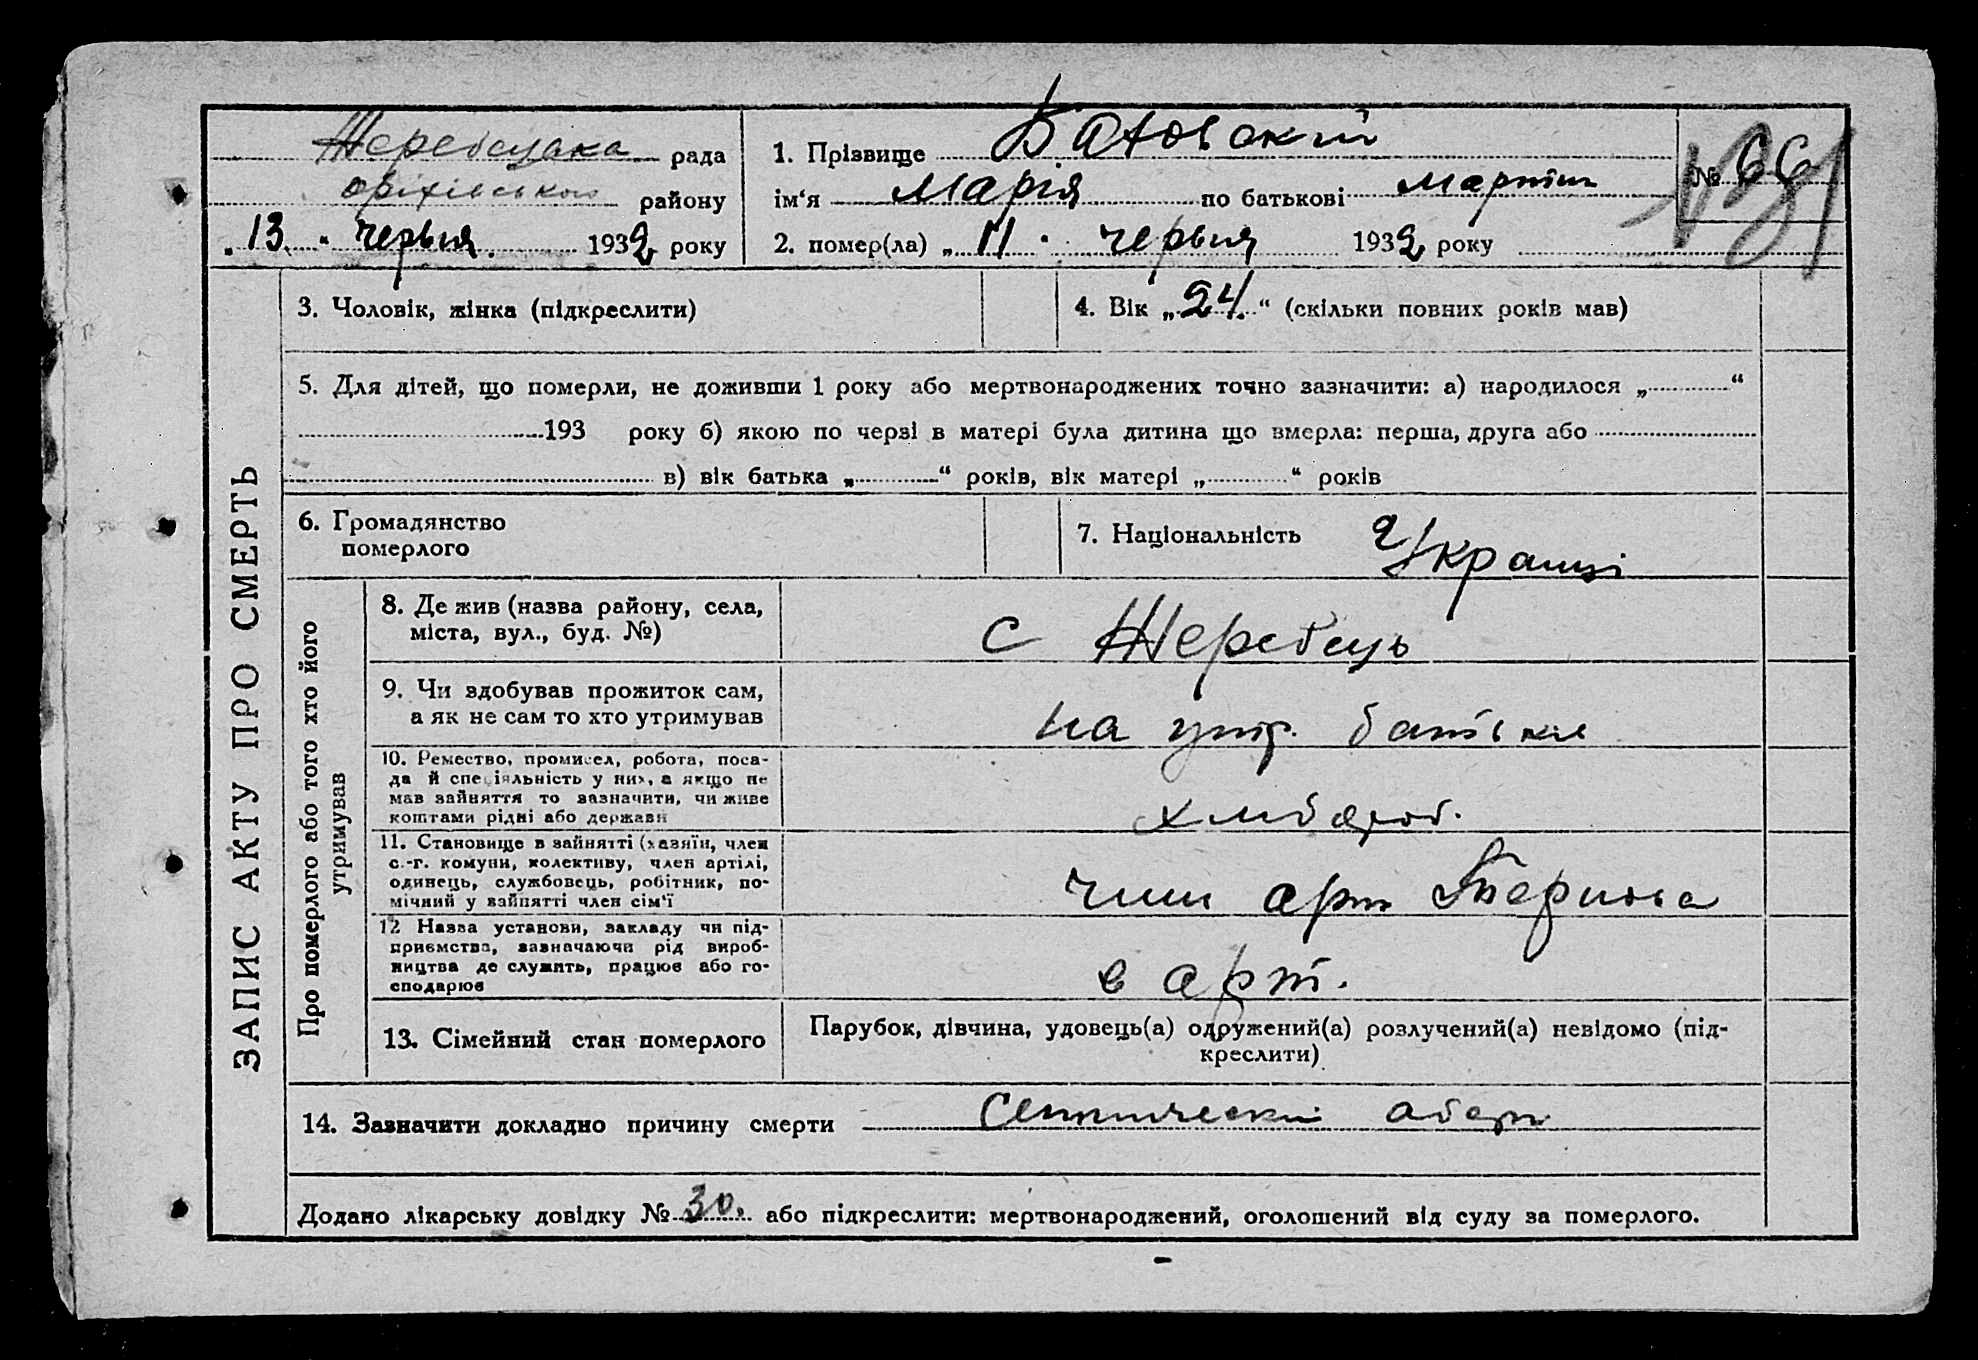 Жеребецька рада
Оріхівського району
„13“ червня 1932 року
1. Прізвище Батовский
ім'я Марія по батькові Мартин
2. помер(ла) „11“ червня 1932 року
№ 66
ЗАПИС АКТУ ПРО СМЕРТЬ
3. Чоловік, жінка (підкреслити)
4. Вік „24“ (скільки повних років мав)
5. Для дітей, що померли, не доживши 1 року або мертвонароджених точно зазначити: а) народилося „ “
193 року б) якою по черзі в матері була дитина що вмерла: перша, друга або
в) вік батька „ “ років, вік матері „ “ років
6. Громадянство
померлого
7. Національність Украинці
Про померлого або того хто його
утримував
8. Де жив (назва району, села,
міста, вул., буд. №)
с Жеребець
9. Чи здобував прожиток сам,
а як не сам то хто утримував
на утр. батька
10. Ремество, промисел, робота, поса-
да й спеціяльність у них, а якщо не
мав зайняття то зазначити, чи живе
коштами рідні або держави
хлібороб.
11. Становище в зайнятті (хазяїн, член
с.-г. комуни, колективу, член артілі,
одинець, службовець, робітник, по-
мічний у зайнятті член сім'ї
член арт
12 Назва установи, закладу чи під-
приємства, зазначаючи рід вироб-
ництва де служить, працює або го-
сподарює
в арт.
13. Сімейний стан померлого
Парубок, дівчина, удовець(а) одружений(а) розлучений(а) невідомо (під-
креслити)
14. Зазначити докладно причину смерти Септический аборт
Додано лікарську довідку № 30. або підкреслити: мертвонароджений, оголошений від суду за померлого.